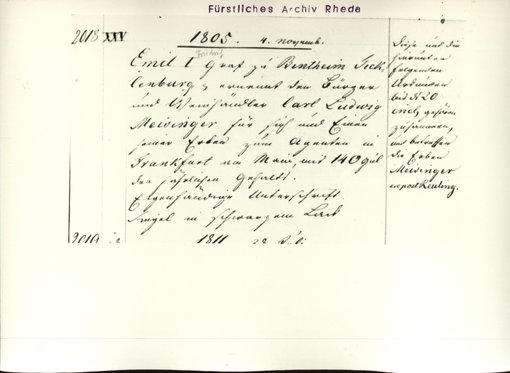 Fürstliches Archiv Rheda
2018 XXV
1805. 4. novemb.
Emil I Graf zu Bentheim Teck-
lenburg, ernennt den Bürger
und Weinhandler Carl Ludwig
Meisinger für sich und Einen
seiner Erben zum Agenten in
Frankfurt am Main, mit 140 Gul
den jährlichen Gehalts.
Eigenhändige Unterschrift
Siegel in schwarzem Lack
Diese und die
hierunter
folgenden
Urkunden
bis N 20
incl. gehören
zusammen,
und betreffen
die Erben
Meisinger
modo Reuling.
2019 1811 28